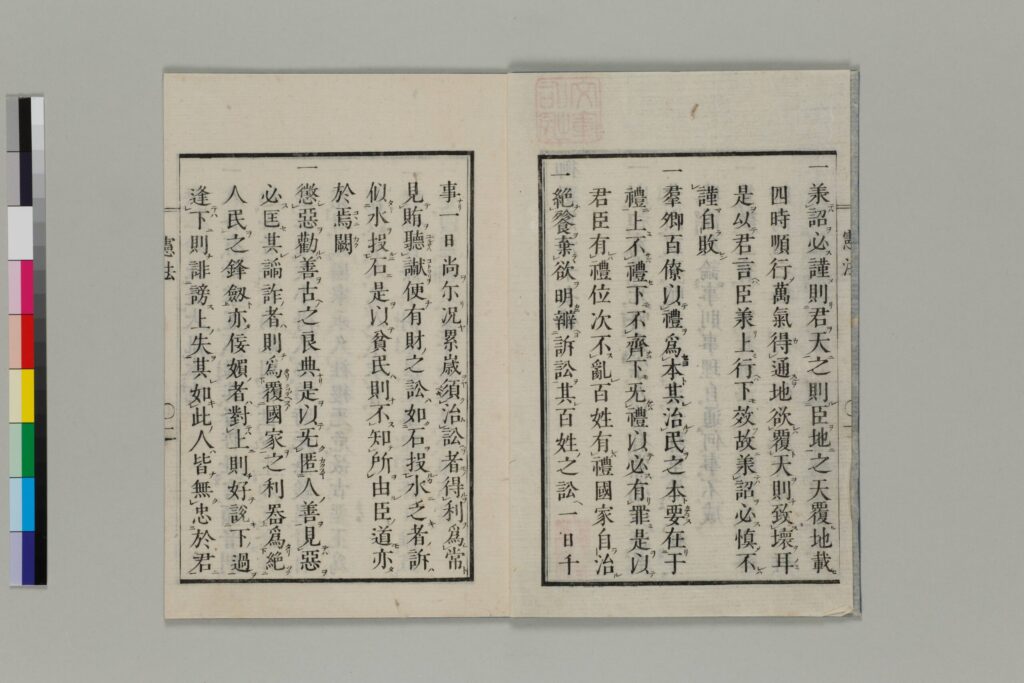 一 兼詔必謹則君天之則臣地之天覆地載
四時順行萬氣得通地欲覆天則致壞耳
是以君言臣兼上行下效故兼詔必慎不
謹自敗
一 羣卿百僚以禮爲本其治民之本要在于
禮上不禮下不齊下无禮以必有罪是以
君臣有禮位次不亂百姓有禮國家自治
一 絶餮棄欲明辨訴訟其百姓之訟一日千
憲法
事一日尚尓况累歳須治訟者得利爲常
見賄聽讞便有財之訟如石投水乏者訴
似水投石是以貧民則不知所由臣道亦
於焉闕
一 懲惡勸善古之良典是以无匿人善見惡
必匡其諂詐者則爲覆國家之利器爲絶
人民之鋒劔亦佞媚者對上則好説下過
逢下則誹謗上失其如此人皆無忠於君
憲法